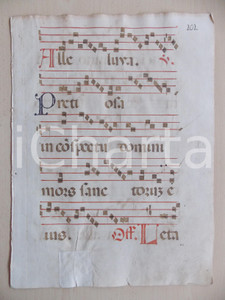 202
Alle luya. V.
Preti osa
in cōspectu domini
mors sanc toruz e
ius. Off. Leta
iCharta